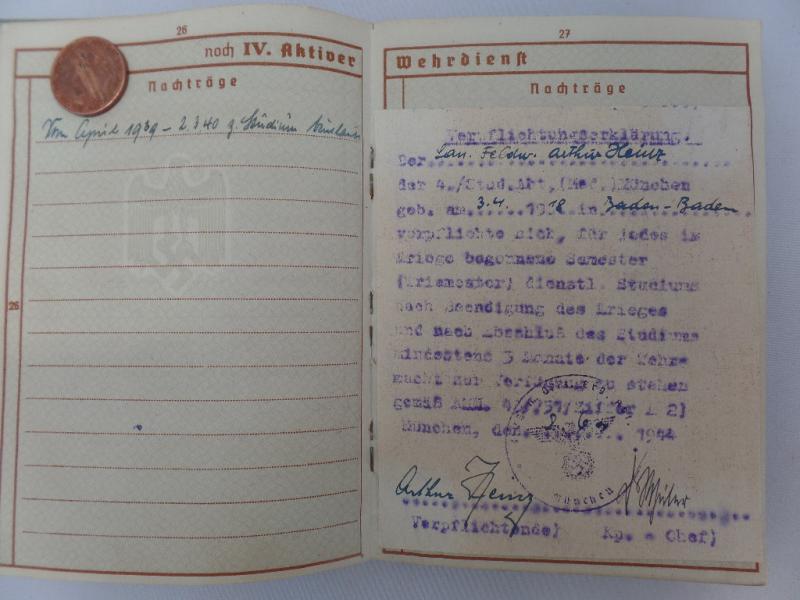 26
noch IV. Aktiver
Nachträge
Vom April 1939 – 2.3.40 z. Studium
26
27
Wehrdienst
Nachträge
Verpflichtungserklärung.
Der San. Feldw. Arthur Heinz
der 4./Stud.Abt,(Med.)München
geb. am 3.4. 1918 in Baden-Baden
verpflichte sich, für jedes im
Kriege begonnene Semester
(Trimester) dienstl. Studiums
nach Beendigung des Krieges
und nach Abschluß des Studiums
mindestens 3 Monate der Wehr=
macht zur Verfügung zu stehen
gemäß 2)
München, den 1944
München
Arthur Heinz
Verpflichtende) Kp. = Chef)